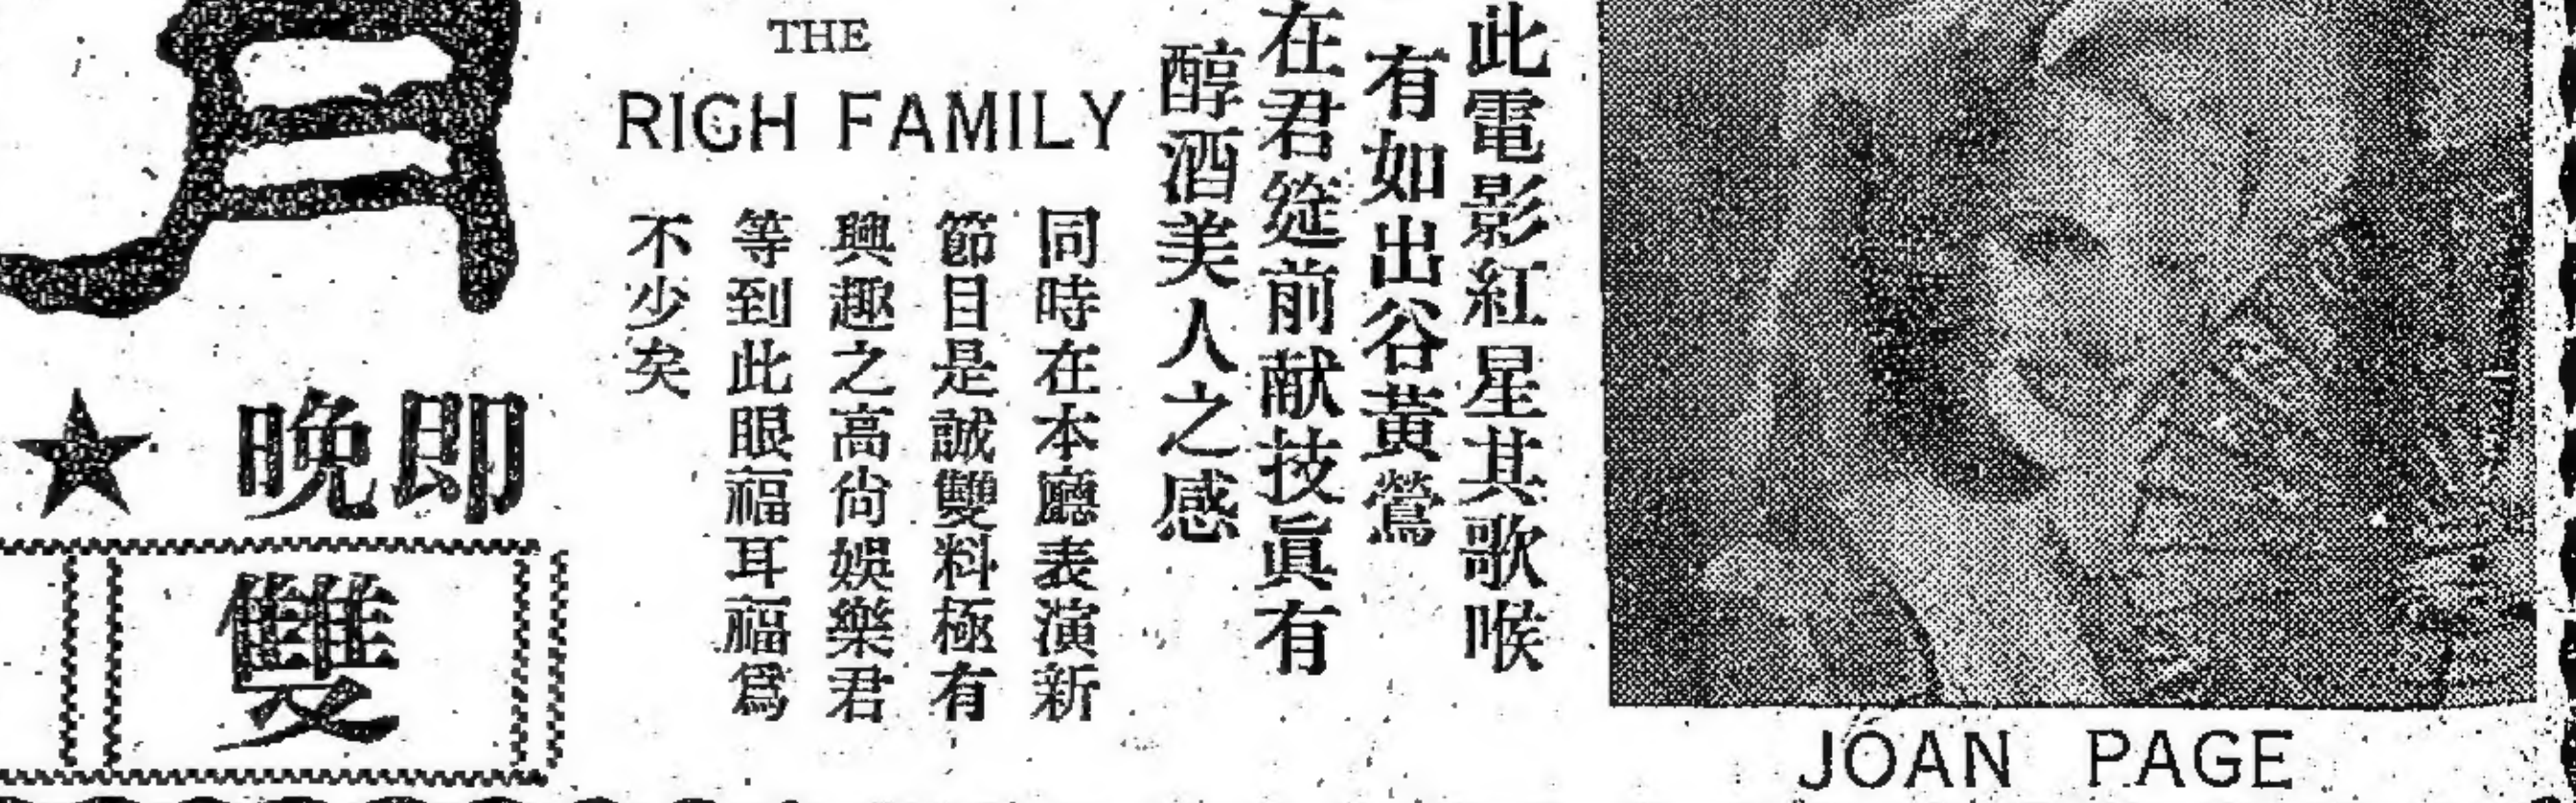 JOAN PAGE
此電影紅星其歌喉
有如出谷黃鶯
在君筵前献技眞有
醇酒美人之感
THE
RICH FAMILY
同時在本廳表演新
節目是誠雙料極有
興趣之高尙娛樂君
等到此眼福耳福爲
不少矣
即晚★
雙